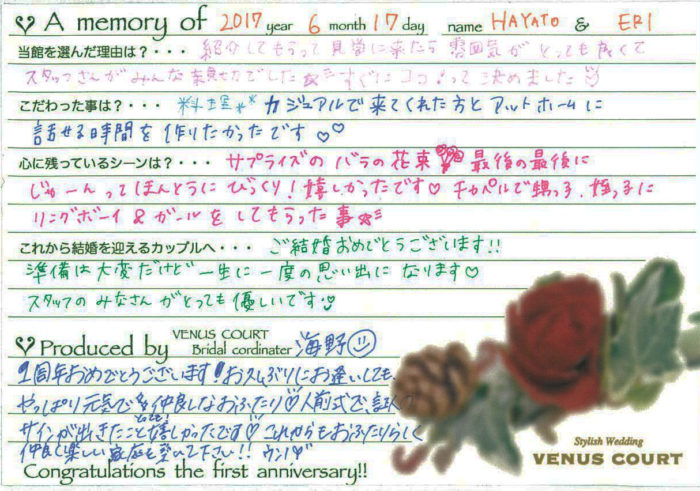 A memory of 2017 year 6 month 17 day name HAYATO & ERI
当館を選んだ理由は？・・・ 紹介してもらって見学に来たら雰囲気がとっても良くて
スタッフさんがみんな親切でした すぐにココ！って決めました
こだわった事は？・・・ 料理 カジュアルで来てくれた方とアットホームに
話せる時間を作りたかったです
心に残っているシーンは？・・・ サプライズのバラの花束 最後の最後に
じゃーんってほんとうにびっくり！嬉しかったです♡ チャペルで甥っ子、姪っ子に
リングボーイ&ガールをしてもらった事
これから結婚を迎えるカップルへ・・・ ご結婚おめでとうございます!!
準備は大変だけど一生に一度の思い出になります♡
スタッフのみなさんがとっても優しいです
Produced by VENUS COURT Bridal cordinater 海野
1周年おめでとうございます！お久しぶりにお逢いしても、
やっぱり元気で仲良しなおふたり♡人前式で、証人の
サインが出来たこと とっても 嬉しかったです♡ これからもおふたりらしく
仲良く楽しい家庭を築いて下さい!!
Congratulations the first anniversary!!
Stylish Wedding
VENUS COURT